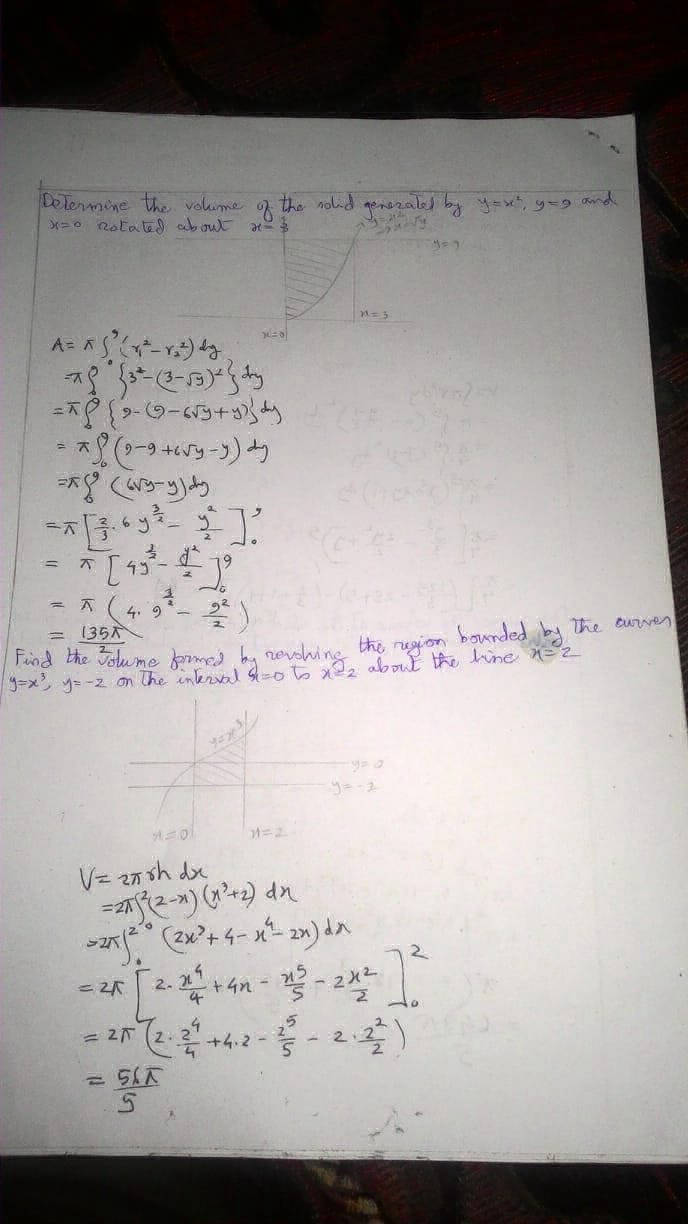 Determine the volume of the solid generated by y=x², y=9 and
x=0 rotated about x=3
y=x²
⇒x=√y
y=9
x=3
x=0
A= π∫₀⁹(r₁²-r₂²)dy
=π∫₀⁹{3²-(3-√y)²}dy
=π∫₀⁹{9-(9-6√y+y)}dy
= π∫₀⁹(9-9+6√y-y)dy
=π∫₀⁹(6√y-y)dy
=π[2/3·6y^(3/2) - y²/2]₀⁹
= π[4y^(3/2) - y²/2]₀⁹
= π(4·9^(3/2) - 9²/2)
= 135π/2
Find the volume formed by revolving the region bounded by the curves
y=x³, y=-2 on the interval x=0 to x=2 about the line x=2
y=x³
y=0
y=-2
x=0
x=2
V= 2π rh dx
=2π∫₀²(2-x)(x³+2) dx
=2π∫₀²(2x³+4-x⁴-2x)dx
=2π[2·x⁴/4+4x-x⁵/5-2x²/2]₀²
=2π(2·2⁴/4+4·2-2⁵/5-2·2²/2)
= 56π/5